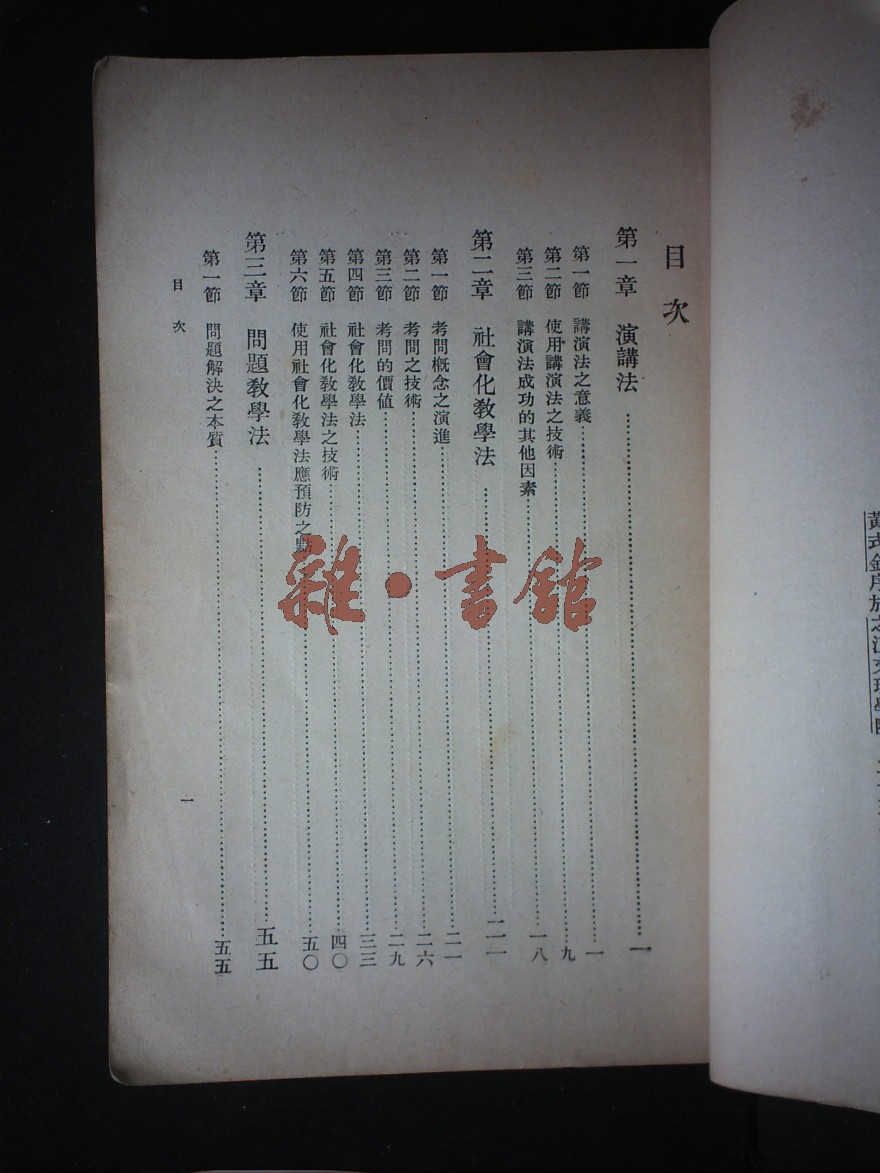 目次
第一章 演講法……一
第一節 講演法之意義……一
第二節 使用講演法之技術……九
第三節 講演法成功的其他因素……一八
第二章 社會化教學法……二一
第一節 考問概念之演進……二一
第二節 考問之技術……二六
第三節 考問的價值……二九
第四節 社會化教學法……三三
第五節 社會化教學法之技術……四〇
第六節 使用社會化教學法應預防之點……五〇
第三章 問題教學法……五五
第一節 問題解決之本質……五五
目次
一
雜·書館